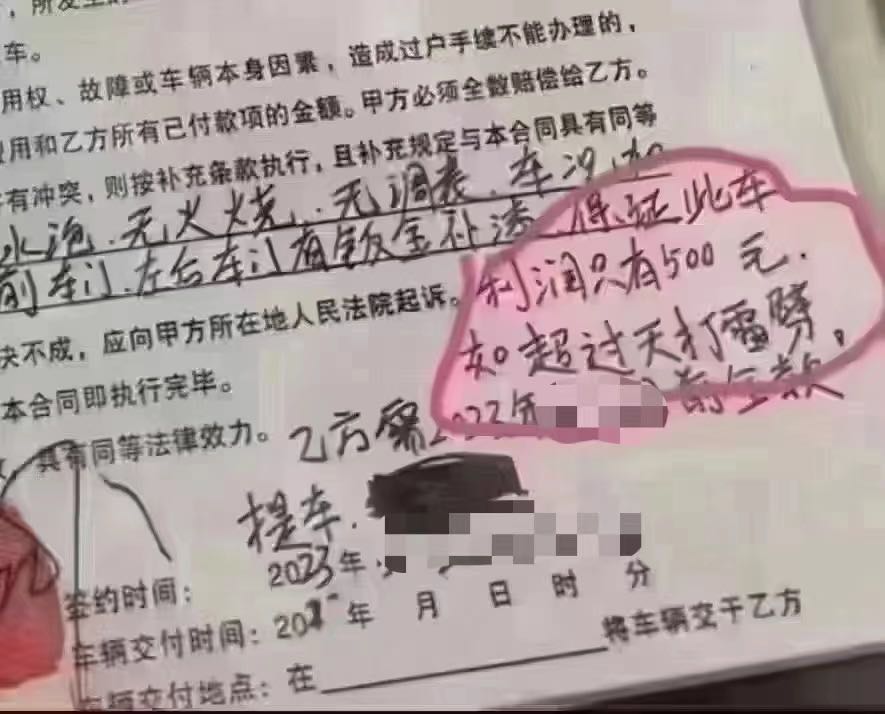 ，所发生的
车。
用权、故障或车辆本身因素，造成过户手续不能办理的，
用和乙方所有已付款项的金额。甲方必须全数赔偿给乙方。
有冲突，则按补充条款执行，且补充规定与本合同具有同等
水泡.无火烧.无调表.车况
前车门.左后车门有钣金补漆.保证此车
利润只有500元.
决不成，应向甲方所在地人民法院起诉。
如超过天打雷劈，
本合同即执行完毕。
具有同等法律效力。乙方需2023年 前全款
提车.
签约时间：2023年
车辆交付时间：202 年 月 日 时 分
车辆交付地点：在 将车辆交于乙方